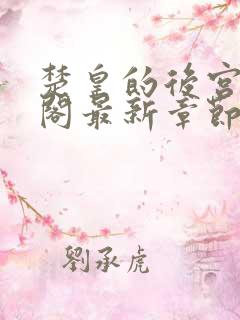 楚皇的後宮
閣最新章節
劉承虎